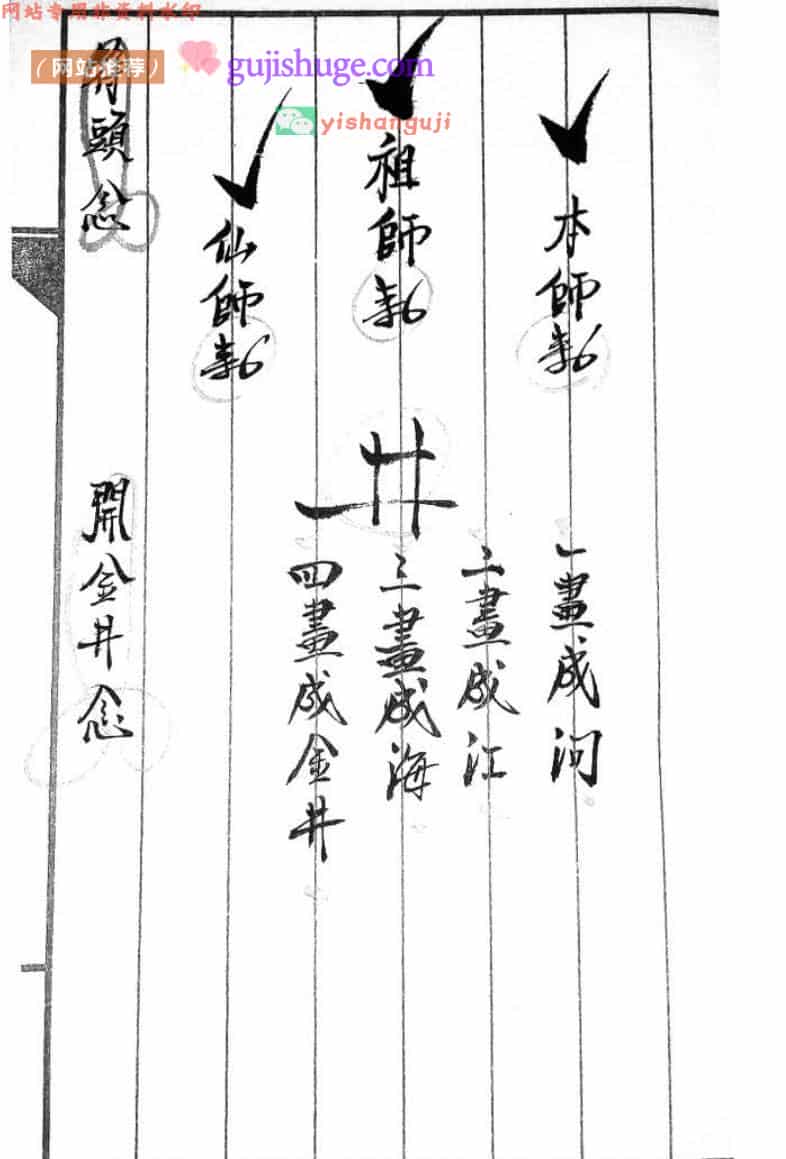 网站专用非资料水印
（网站推荐）
gujishuge.com
yishanguji
本師勅
祖師勅
仙師勅
一畫成河
二畫成江
三畫成海
四畫成金井
頭念
開金井念